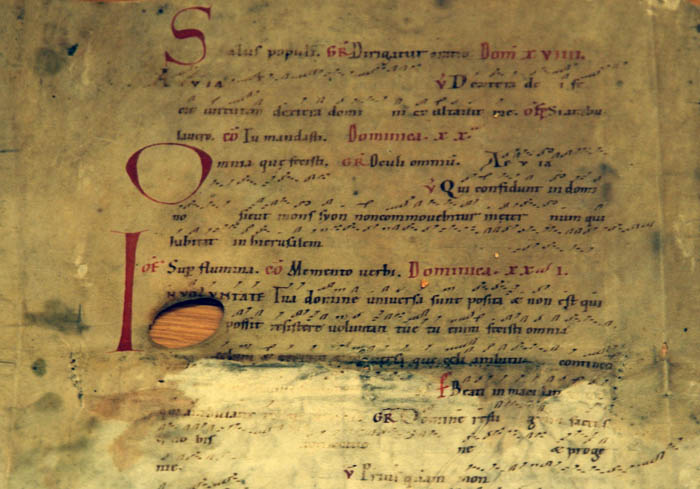 Salus populi. GR Dirigatur oratio Dom̄ x viiii.
A E V I A ℣ Dextera dei fe
cit uirtutem dextera domi ni exaltauit me. oꝼ Si ambu
lauero. cō In mandasti. Dominica. x x.
Omnia que fecisti. GR Oculi omniū. A E V IA
℣ Qui confidunt in domi
no sicut mons syon non commouebitur in eter num qui
habitat in hierusalem
oꝼ Sup flumina. cō Memento uerbi. Dominica. x x i.
IN VOLUNTATE Tua domine uniuersa sunt posita & non est qui
possit resistere uoluntati tue tu enim fecisti omnia
celum & que celi ambitu contine
Beati in macu lati
GR Domine refu gium factus
es no bis ne & proge
nie. ℣ Priusquam mon